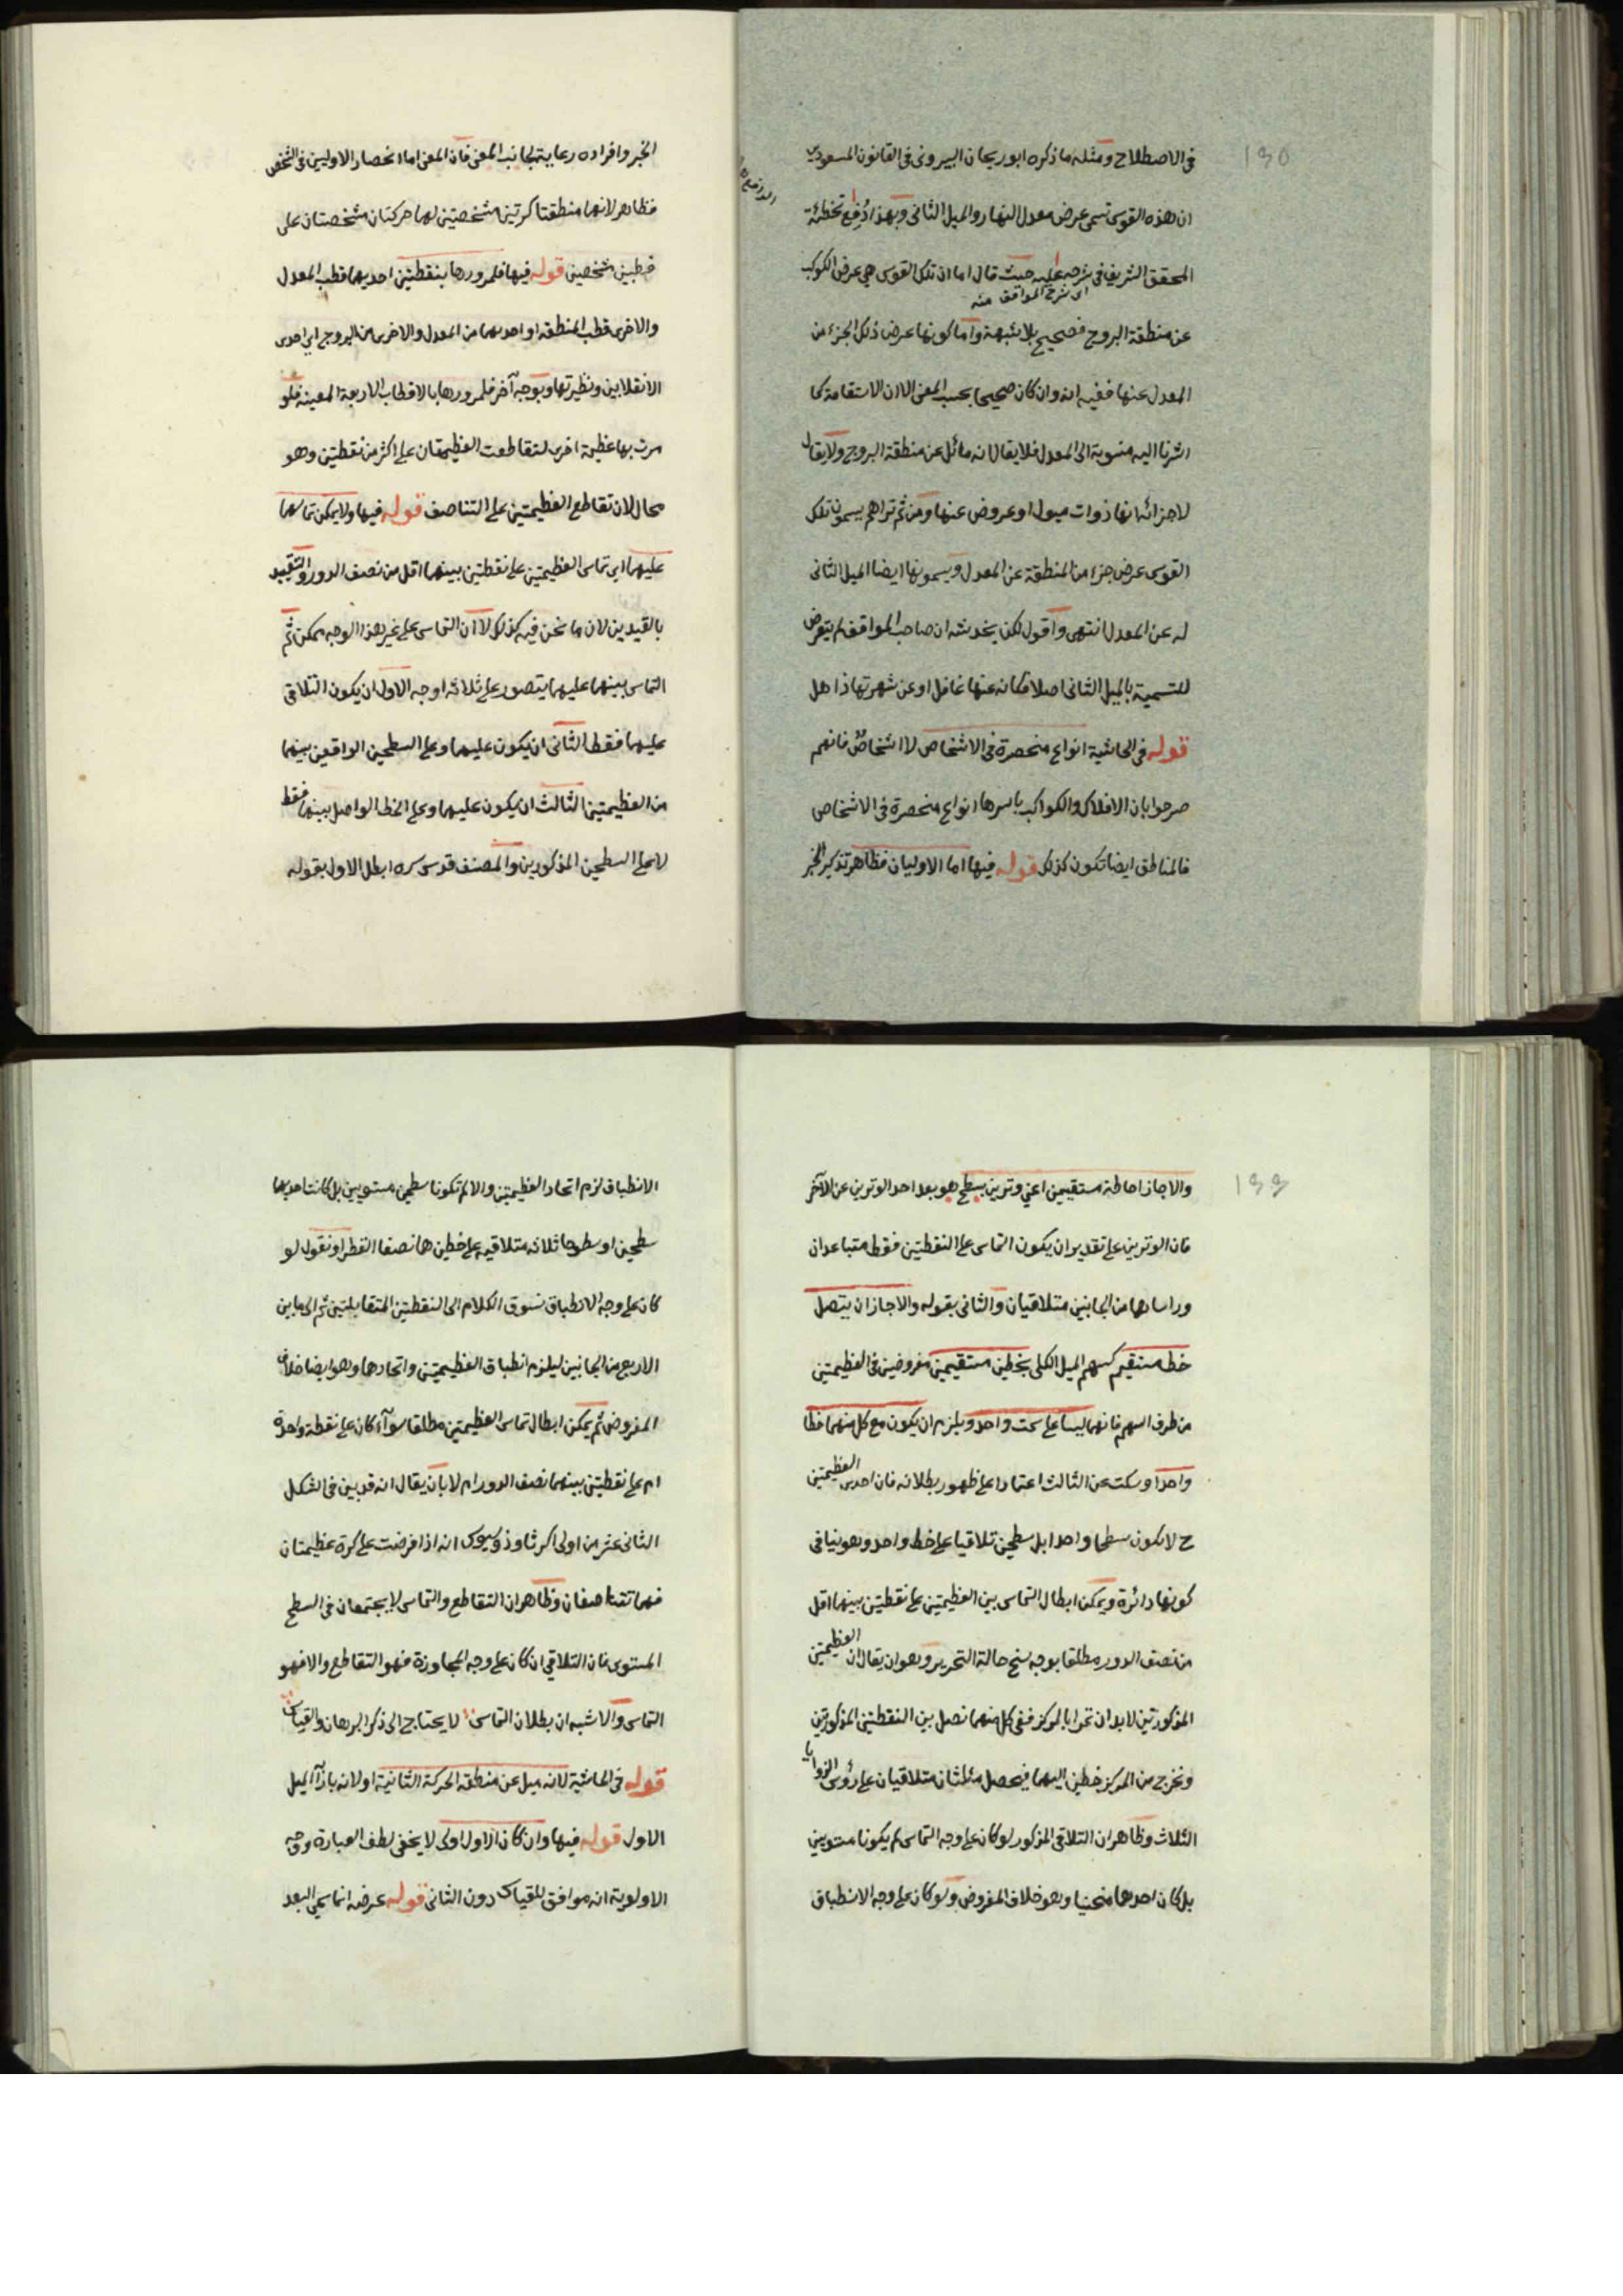 ١٣٥
في الاصطلاح ومثله ما ذكره ابوريحان البيروني في القانون المسعودي
ان هذه القوس تسمى عرض معدل النهار والميل الثاني وبهذا دُفِع تخطئة
المحقق الشريف في شرحه عليه حيث قال اما ان تلك القوس هي عرض الكوكب
اى شرح المواقف منه
عن منطقة البروج فصحيح بلا شبهة واما كونها عرض ذلك الجزء من
المعدل عنها ففيه انه وان كان صحيحا بحسب المعنى الا ان الاستقامة كما
اشرنا اليه منسوبة الى المعدل فلا يقال انه مائل عن منطقة البروج ولا يقال
لاجزائه انها ذوات ميول او عروض عنها ومن ثم تراهم يسمون تلك
القوس عرض جزء من المنطقة عن المعدل ويسمونها ايضا الميل الثاني
له عن المعدل انتهى واقول لكن يخدشه ان صاحب المواقف لم يتعرض
للتسمية بالميل الثاني اصلا فكانه عنها غافل او عن شهرتها ذاهل
قوله في الحاشية انواع منحصرة في الاشخاص لا اشخاص فانهم
صرحوا بان الافلاك والكواكب باسرها انواع منحصرة في الاشخاص
فالمناطق ايضا تكون كذلك قوله فيها اما الاوليان فظاهر تذكير الخبر
الخبر وافراده رعاية لجانب المعنى فان المعنى اما انحصار الاوليين في الشخص
فظاهر لانهما منطقتا كرتين مشخصتين لهما حركتان مشخصتان على
قطبين مشخصين قوله فيها فلمرورها بنقطتين احديهما قطب المعدل
والاخرى قطب المنطقة او احديهما من المعدل والاخرى من البروج اي احدى
الانقلابين ونظيرتها وبوجه آخر فلمرورها بالاقطاب الاربعة المعينة فلو
مرت بها عظيمة اخرى لتقاطعت العظيمتان على اكثر من نقطتين وهو
محال لان تقاطع العظيمتين على التناصف قوله فيها ولا يمكن تماسهما
عليهما اي تماس العظيمتين على نقطتين بينهما اقل من نصف الدور والتقييد
بالقيدين لان ما نحن فيه كذلك لا ان التماس على غير هذا الوجه ممكن ثم
التماس بينهما عليهما يتصور على ثلاثة اوجه الاول ان يكون التلاقي
عليهما فقط الثاني ان يكون عليهما وعلى السطحين الواقعين بينهما
من العظيمتين الثالث ان يكون عليهما وعلى الخط الواصل بينهما فقط
لا على السطحين المذكورين والمصنف قدس سره ابطل الاول بقوله
١٣٦
والا جاز احاطة مستقيمين اعني وترين بسطح هو بعد احد الوترين عن الآخر
فان الوترين على تقدير ان يكون التماس على النقطتين فقط متباعدان
وراساهما من الجانبين متلاقيان والثاني بقوله والا جاز ان يتصل
خط مستقيم كسهم الميل الكلي بخطين مستقيمين مفروضين في العظيمتين
من طرف السهم فانهما ليسا على سمت واحد ويلزم ان يكون مع كل منهما خطا
واحدا وسكت عن الثالث اعتمادا على ظهور بطلانه فان احدى العظيمتين
ح لا تكون سطحا واحدا بل سطحين تلاقيا على خط واحد وهو ينافي
كونها دائرة ويمكن ابطال التماس بين العظيمتين على نقطتين بينهما اقل
من نصف الدور مطلقا بوجه سنح حالة التحرير وهو ان يقال ان العظيمتين
المذكورتين لا بد ان تمرا بالمركز ففي كل منهما نصل بين النقطتين المذكورتين
ونخرج من المركز خطين اليهما فيحصل مثلثان متلاقيان على رؤس الزوايا
الثلاث وظاهر ان التلاقي المذكور لو كان على وجه التماس لم يكونا مستويين
بل كان احدهما منحنيا وهو خلاف المفروض ولو كان على وجه الانطباق
الانطباق لزم اتحاد العظيمتين والا لم تكونا سطحين مستويين بل كانت احديهما
سطحين او سطوحا ثلاثة متلاقية على خطين هما نصفا القطر او نقول لو
كان على وجه الانطباق نسوق الكلام الى النقطتين المتقابلتين ثم الى ما بين
الاربع من الجانبين ليلزم انطباق العظيمتين واتحادهما وهو ايضا خلاف
المفروض ثم يمكن ابطال تماس العظيمتين مطلقا سواء كان على نقطة واحدة
ام على نقطتين بينهما نصف الدور ام لا بان يقال انه قد بين في الشكل
الثاني عشر من اولى اكر ثاوذوسيوس انه اذا فرضت على كرة عظيمتان
فهما تتناصفان وظاهر ان التقاطع والتماس لا يجتمعان في السطح
المستوى فان التلاقي ان كان على وجه المجاوزة فهو التقاطع والا فهو
التماس والاشبه ان بطلان التماس لا يحتاج الى ذكر البرهان والقياس
قوله في الحاشية لانه ميل عن منطقة الحركة الثانية او لانه بازاء الميل
الاول قوله فيها وان كان الاول اولى لا يخفى لطف العبارة ووجه
الاولوية انه موافق للقياس دون الثاني قوله عرضه انما سمي البعد